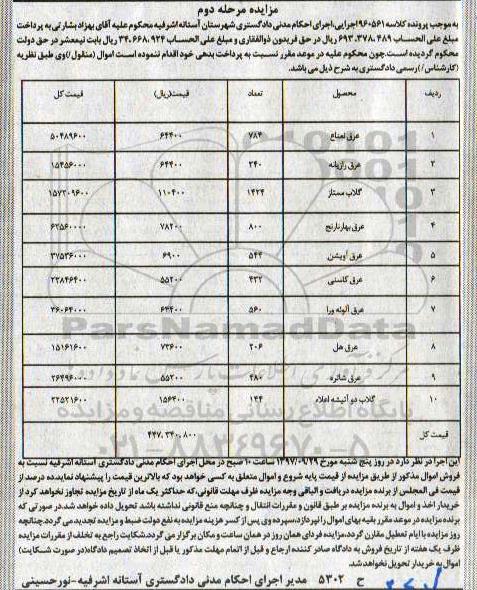 مزایده مرحله دوم
به موجب پرونده کلاسه ۹۶۰۵۶۱ اجرایی،اجرای احکام مدنی دادگستری شهرستان آستانه اشرفیه محکوم علیه آقای بهزاد بشارتی به پرداخت
مبلغ علی الحساب ۶۹۳،۳۷۸،۴۸۹ ریال در حق فریدون ذوالفقاری و مبلغ علی الحساب ۳۴،۶۶۸،۹۲۴ ریال بابت نیمعشر در حق دولت
محکوم گردیده است.چون محکوم علیه در موعد مقرر نسبت به پرداخت بدهی خود اقدام ننموده است اموال (منقول)وی طبق نظریه
(کارشناس/)رسمی دادگستری به شرح ذیل می باشد.
ردیف محصول تعداد قیمت(ریال) قیمت کل
۱ عرق نعناع ۷۸۴ ۶۴۴۰۰ ۵۰۴۸۹۶۰۰
۲ عرق رازیانه ۲۴۰ ۶۴۴۰۰ ۱۵۴۵۶۰۰۰
۳ گلاب ممتاز ۱۴۲۴ ۱۱۰۴۰۰ ۱۵۷۲۰۹۶۰۰
۴ عرق بهارنارنج ۸۰۰ ۷۸۲۰۰ ۶۲۵۶۰۰۰۰
۵ عرق آویشن ۵۴۴ ۶۹۰۰ ۳۷۵۳۶۰۰۰
۶ عرق کاسنی ۴۳۲ ۵۵۲۰۰ ۲۳۸۴۶۴۰۰
۷ عرق آلوئه ورا ۵۶۰ ۶۴۴۰۰ ۳۶۰۶۴۰۰۰
۸ عرق هل ۲۰۶ ۷۳۶۰۰ ۱۵۱۶۱۶۰۰
۹ عرق شاتره ۴۸۰ ۵۵۲۰۰ ۲۶۴۹۶۰۰۰
۱۰ گلاب دو آتیشه اعلاء ۱۴۴ ۱۵۶۴۰۰ ۲۲۵۲۱۶۰۰
قیمت کل ۴۴۷،۳۴۰،۸۰۰
ParsNamadData
پایگاه اطلاع رسانی مناقصه و مزایده
۰۲۱-۸۸۳۴۹۶۷۰-۵
این اجرا در نظر دارد در روز پنج شنبه مورخ ۱۳۹۷/۰۹/۲۹ ساعت ۱۰ صبح در محل اجرای احکام مدنی دادگستری آستانه اشرفیه نسبت به
فروش اموال مذکور از طریق مزایده از قیمت پایه شروع و اموال متعلق به کسی خواهد بود که بالاترین قیمت را پیشنهاد نماید ده درصد از
قیمت فی المجلس از برنده مزایده دریافت و الباقی وجه مزایده ظرف مهلت قانونی،که حداکثر یک ماه از تاریخ مزایده تجاوز نخواهد کرد از
خریدار اخذ و اموال به برنده مزایده بر طبق قانون و مقررات انتقال و چنانچه منع قانونی نداشته باشد تحویل داده خواهد شد.در صورتی که
برنده مزایده در موعد مقرر بقیه بهای اموال را نپردازد،سپرده وی پس از کسر هزینه مزایده به نفع دولت ضبط و مزایده تجدید می گردد.چنانچه
روز مزایده با ایام تعطیل مقارن گردد،مزایده فردای همان روز در همان ساعت و مکان برگزار می گردد.شکایت راجع به تخلف از مقررات مزایده
ظرف یک هفته از تاریخ فروش به دادگاه صادر کننده ارجاع و قبل از اتمام مهلت مذکور یا قبل از اتخاذ تصمیم دادگاه(در صورت شکایت)
اموال به خریدار تحویل نخواهد شد.
ح ۵۳۰۲ مدیر اجرای احکام مدنی دادگستری آستانه اشرفیه-نورحسینی